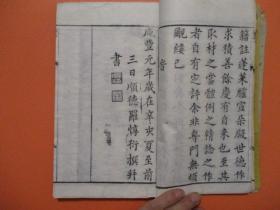 籍註蓬萊臚宣朵殿世德作
求積善餘慶有自來也至其
取材之當體例之精論之作
者自有定評余非專門無煩
覼縷已
咸豐元年歲在辛亥夏至前
三日順德羅惇衍撰幷
書